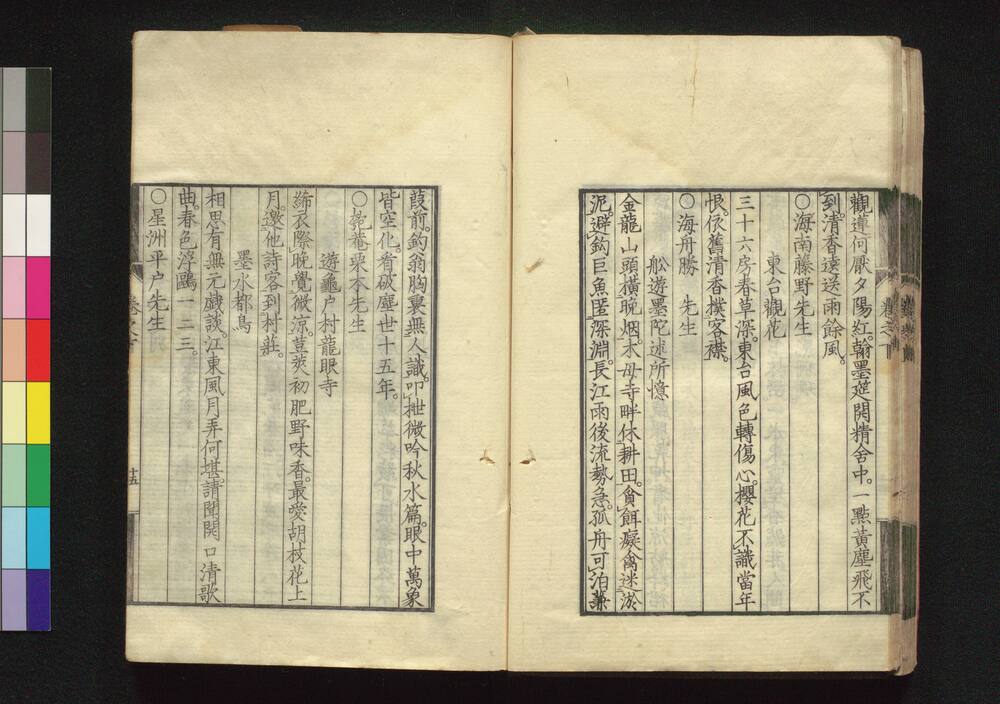 觀遵何厭夕陽紅。翰墨筵開精舍中。一點黃塵飛不
到。清香遠送雨餘風。
○海南藤野先生
東台觀花
三十六房春草深。東台風色轉傷心。櫻花不識當年
恨。依舊清香撲客襟。
○海舟勝　先生
舩遊墨陀述所憶
金龍山頭橫晚烟。木母寺畔休耕田。貪餌癡禽迷淤
泥。避鈎巨魚匿深淵。長江雨後流勢急。孤舟可泊蒹
葭前。釣翁胸裏無人識。叩枻微吟秋水篇。眼中萬象
皆空化。看破塵世十五年。
○匏菴栗本先生
遊龜戶村龍眼寺
絺衣際晚覺微涼。荳莢初肥野味香。最愛胡枝花上
月。邀他詩客到村莊。
墨水都鳥
相思有無元戲談。江東風月弄何堪。請聞開口清歌
曲。春色浮鷗一二三。
○星洲平戶先生
卷之下
十五